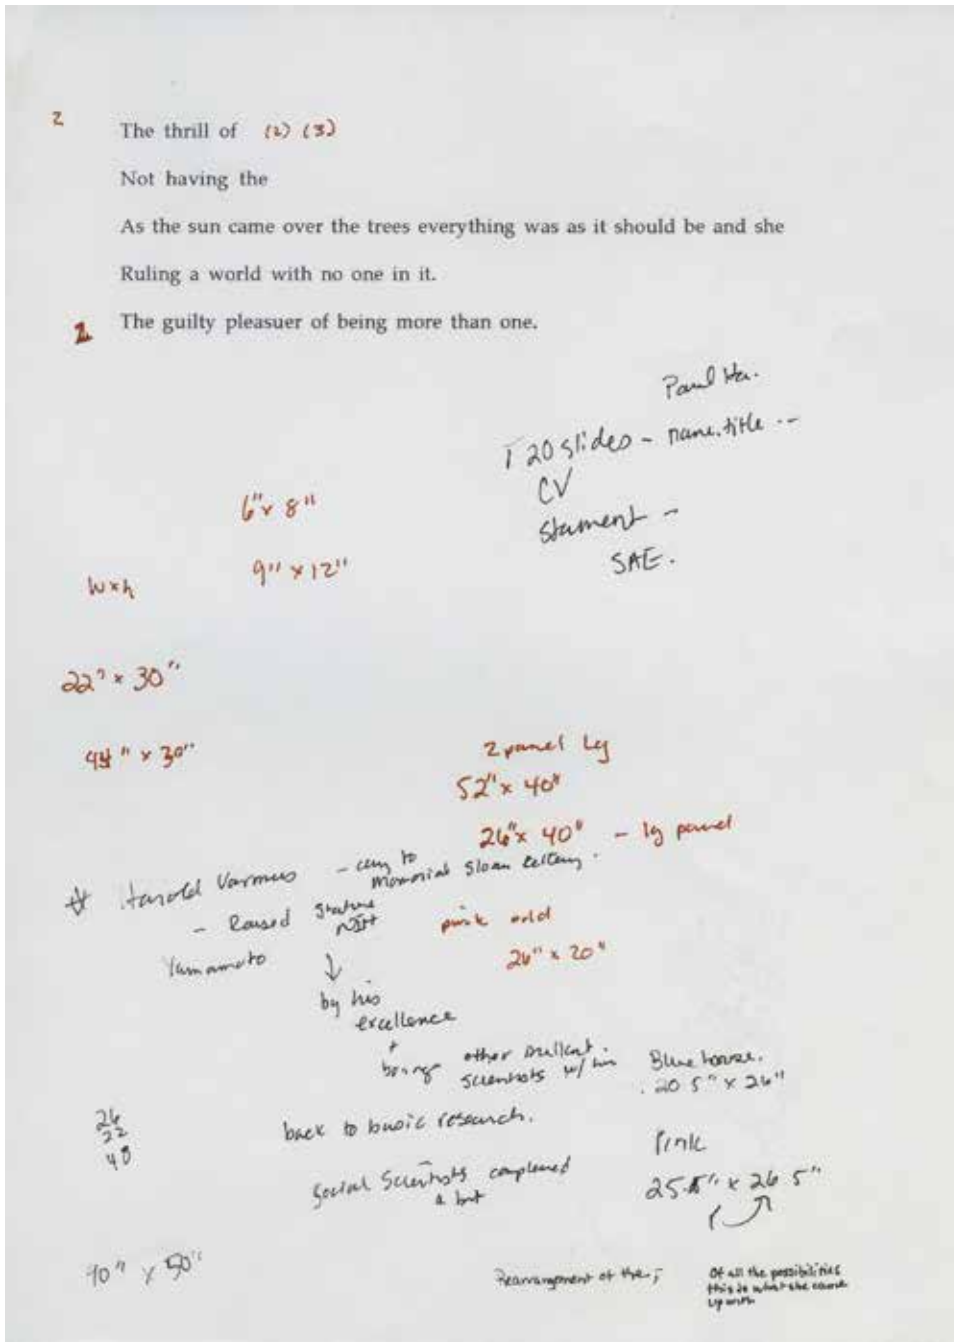 2
The thrill of (2) (3)
Not having the
As the sun came over the trees everything was as it should be and she
Ruling a world with no one in it.
The guilty pleasuer of being more than one.
Paul Ha.
20 slides - name, title --
CV
Stament -
SAE.
6" x 8"
9" x 12"
W x h
22" x 30"
44" x 30"
2 panel Lg
52" x 40"
26" x 40" - lg panel
Harold Varmus - to
Memorial Sloan
- Raised Stature
NIH
Yamamoto
pink
26" x 20"
by his
excellence
+
being other
scientists w/ him
Blue house.
20 5" x 26"
26
22
48
back to basic research.
Pink
25.5" x 26 5"
Social Scientists complained
a bit
40" x 50"
Rearrangement of the,
Of all the possibilities
this is what she came
up with